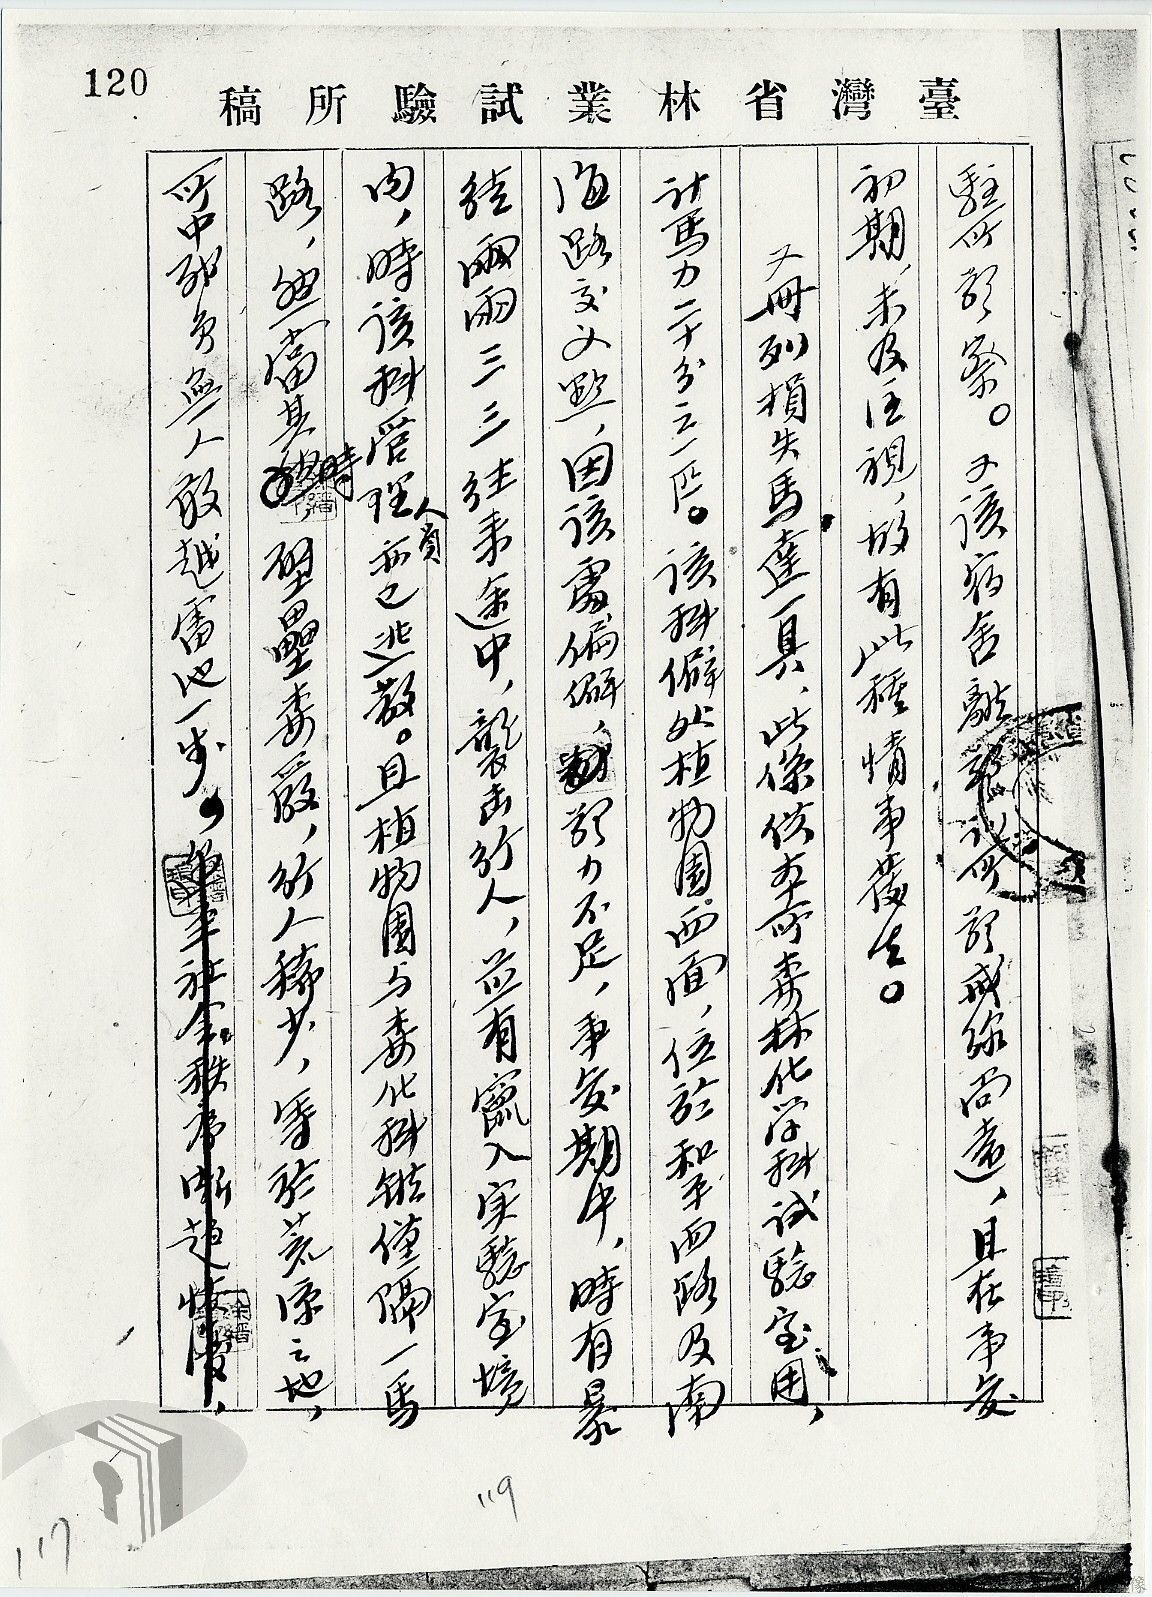 120
臺灣省林業試驗所稿
駐所警察。又該宿舍離警所警戒線尚遠，且在事變
初期，未及注視，故有此種情事發生。
又冊列損失馬達一具，此係供本所森林化學科試驗室用，
計馬力二十分之一匹。該科僻处植物園西面，位於和平西路及南
海路交叉點，因該處偏僻，警力不足，事变期中，時有暴
徒兩兩三三往来途中，襲击行人，並有竄入实驗室境
内，時該科管理人員亦已逃散。且植物園与森化科雖僅隔一馬
路，然當其時，壁壘森嚴，行人稀少，等於荒凉之地，
所中職員無人敢越雷池一步。
社會秩序漸趨恢復，
119
117